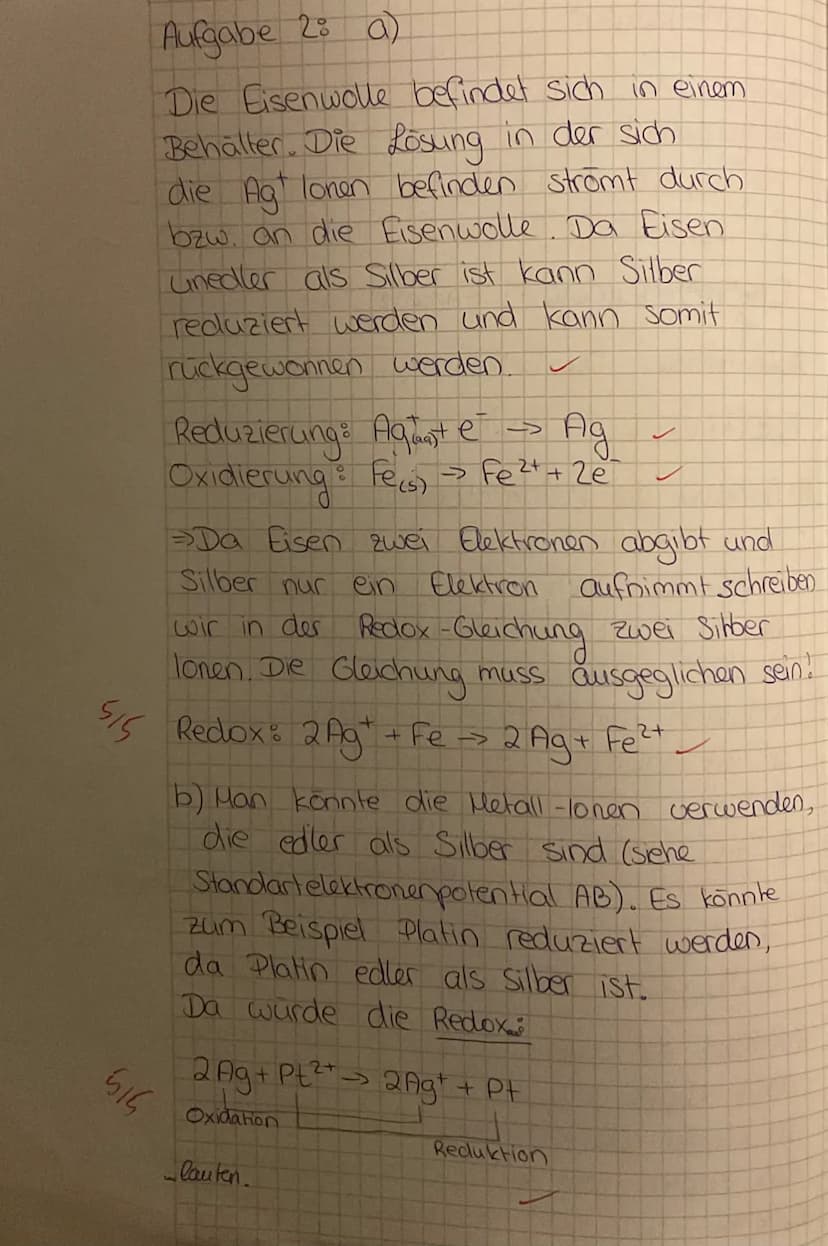 Aufgabe 2: a)
Die Eisenwolle befindet sich in einem
Behälter. Die Lösung in der sich
die Ag⁺ Ionen befinden strömt durch
bzw. an die Eisenwolle. Da Eisen
unedler als Silber ist kann Silber
reduziert werden und kann somit
rückgewonnen werden. ✓
Reduzierung: Ag⁺(aq) + e⁻ → Ag ✓
Oxidierung: Fe(s) → Fe²⁺ + 2e⁻ ✓
⇒ Da Eisen zwei Elektronen abgibt und
Silber nur ein Elektron aufnimmt schreiben
wir in der Redox-Gleichung zwei Silber
Ionen. Die Gleichung muss ausgeglichen sein!
5/5 Redox: 2Ag⁺ + Fe → 2Ag + Fe²⁺ ✓
b) Man könnte die Metall-Ionen verwenden,
die edler als Silber sind (siehe
Standartelektronenpotential AB). Es könnte
zum Beispiel Platin reduziert werden,
da Platin edler als Silber ist.
Da würde die Redox:
5/5 2Ag + Pt²⁺ → 2Ag⁺ + Pt
Oxidation
Reduktion
lauten. ✓